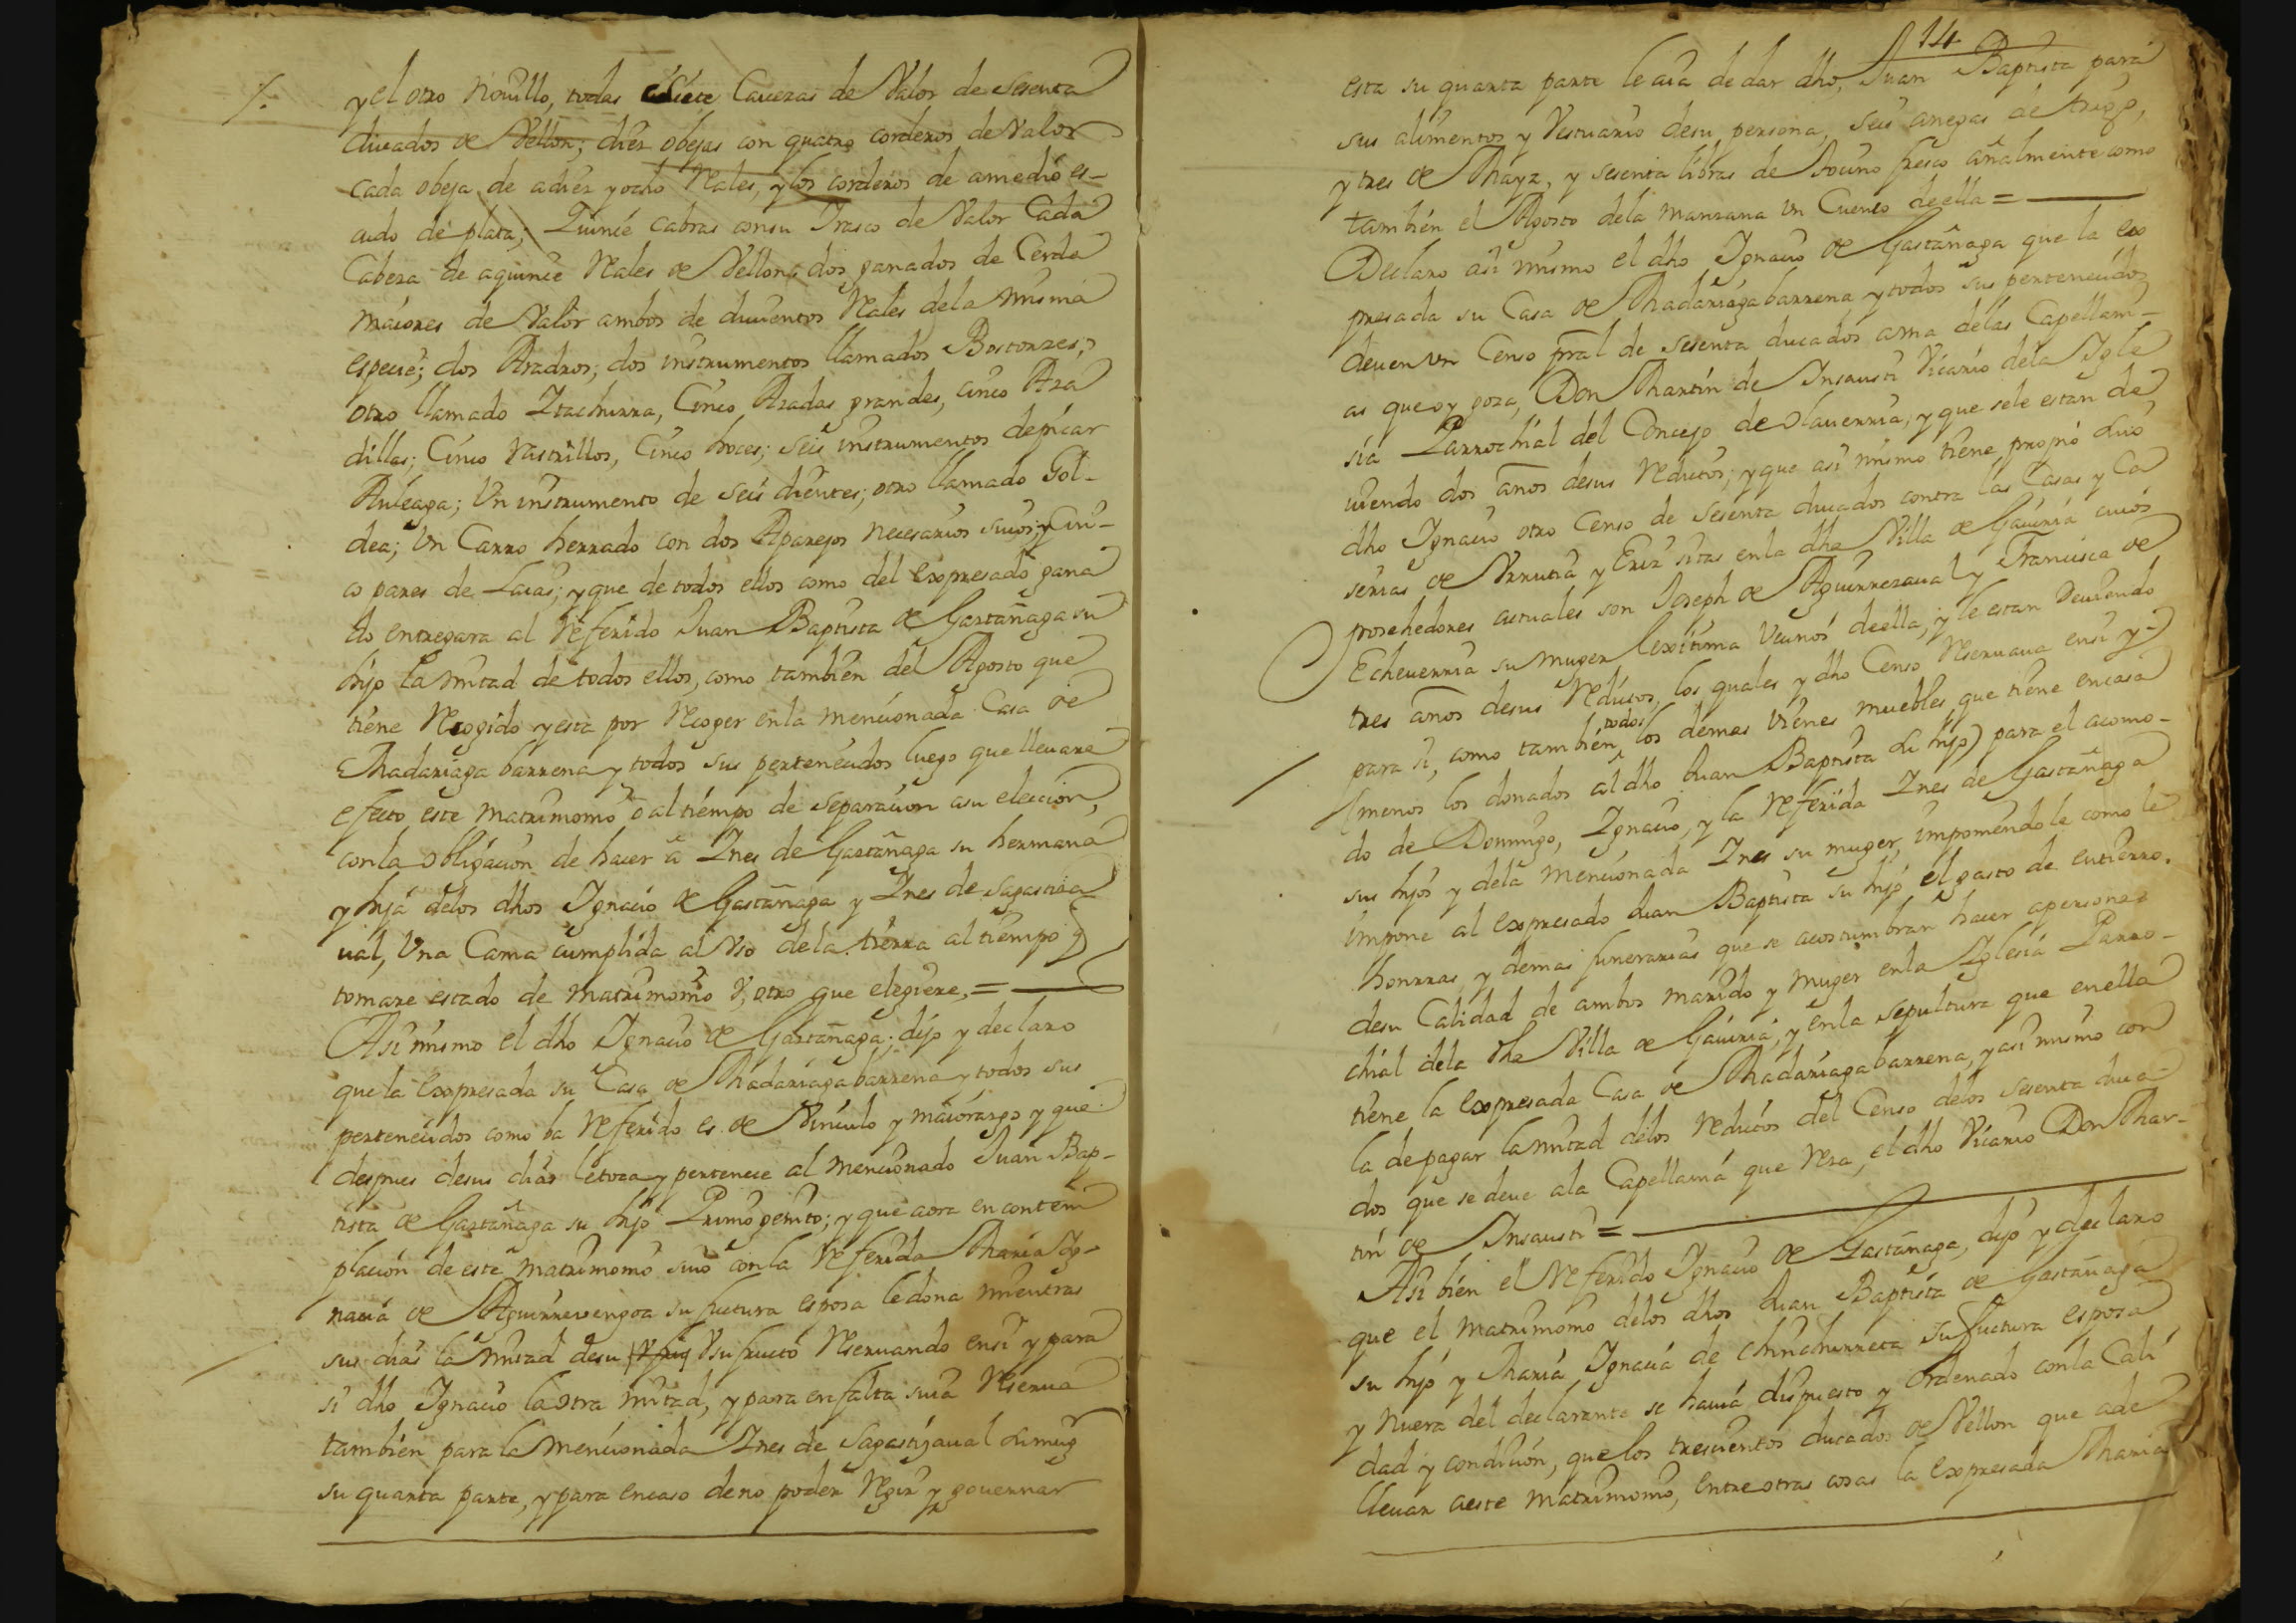 y el otro novillo, todas siete Cavezas de Valor de Sesenta
ducados de Vellon; diez obejas con quatro corderos de Valor
cada obeja de adiez y ocho Rales, y los corderos de amedio es-
cudo de plata; Quince cabras con su Irasco de Valor Cada
Cabeza de aquince Rales de Vellon; dos ganados de Cerda
maiores de Valor ambos de ducientos Rales dela misma
especie; dos Arados; dos instrumentos llamados Bostorzes;
otro llamado Itachurra, Cinco Azadas grandes, cinco Aza
dillas; Cinco Rastrillos, Cinco hoces; Seis instrumentos depicar
Auleaga; Un instrumento de Seis dientes; otro llamado Gol-
dea; Un Carro herrado con dos Aparejos necesarios suios; y Cin-
co pares de Laias; y que de todos ellos como del expresado gana
do entregara al Referido Juan Baptista de Gastañaga su
hijo la mitad de todos ellos, como tambien del Agosto que
tiene Recogido y esta por Recoger enla mencionada Casa de
Madariaga barrena y todos sus pertenecidos luego que llevare
efecto este matrimonio ô altiempo de Separacion asu eleccion,
conla obligacion de hacer â Ines de Gastañaga su hermana
y hija delos dhos Ignacio de Gastañaga y Ines de Sagasti
ual, Una Cama cumplida al Uso dela tierra altiempo q
tomare estado de matrimonio V, otro que elegiere, =
Asi mismo el dho Ignacio de Gastañaga; dijo y declaro
que la expresada su Casa de Madariaga barrena y todos sus
pertenecidos como ba Referido es de Vinculo y maiorazgo y que
despues desus dias letoca y pertenece al mencionado Juan Bap-
tista de Gastañaga su hijo Primogenito; y que aora en contem
placion de este matrimonio suio conla Referida Maria Ig-
nacia de Aguirrevengoa su futura esposa ledona mientras
sus dias la mitad desu Usufructo Reservando ensi y para
si dho Ignacio la otra mitad, y para en falta suia Reserva
tambien para la mencionada Ines de Sagastijaval su mug
su quarta parte, y para encaso de no poder Regir y governar
14
esta su quarta parte le aia de dar dho, Juan Baptista para
sus alimentos y Vestuario desu persona, Seis anegas de trigo,
y tres de Mayz, y sesenta libras de tocino fresco añalmente como
tambien el Agosto dela manzana Un Cuento deella =
Declaro asi mismo el dho Ignacio de Gastañaga que la ex
presada su Casa de Madariaga barrena y todos sus pertenecidos
deuen Un Censo pral de Sesenta ducados auna delas Capellani-
as que oy goza, Don Martin de Insausti Vicario dela Igle
sia Parrochial del Concejo de Olaverria; y que sele estan de
viendo dos años desus Reditos; y que asi mismo tiene propio suio
dho Ignacio otro Censo de Sesenta ducados contra las Casas y Ca
serias de Urrutia y Eriz sitas enla dha Villa de Gaviria cuios
posehedores actuales son Joseph de Aguirrezaval y Francisca de
Echeverria su muger lexitima Vecinos deella; y le estan deviendo
tres años desus Reditos, los quales y dho Censo Reservava ensi y
para si, como tambien todos los demas vienes muebles, que tiene encasa
(menos los donados al dho Juan Baptista su hijo) para el acomo-
do de Domingo, Ignacio, y la Referida Ines de Gastañaga
sus hijos y dela mencionada Ines su muger, imponiendole como le
impone al expresado Juan Baptista su hijo el gasto de entierro.
honrras, y demas funerarias que se acostumbran hacer apersonas
desu Calidad de ambos marido y muger enla Iglesia Parro-
chial dela dha Villa de Gaviria, y enla Sepultura que enella
tiene la expresada Casa de Madariaga barrena, y asi mismo con
la depagar la mitad delos reditos del Censo delos Sesenta duca-
dos que se deve ala Capellania que Reza, el dho Vicario Don Mar-
tin de Insausti =
Asi bien el Referido Ignacio de Gastañaga, dijo y declaro
que el matrimonio delos dhos Juan Baptista de Gastañaga
su hijo y Maria Ignacia de Chinchurreta su futura esposa
y nuera del declarante se havia dispuesto y ordenado conla Cali
dad y condicion, que los trescientos ducados de Vellon que ade
llevar aeste matrimonio, entre otras cosas la expresada Maria